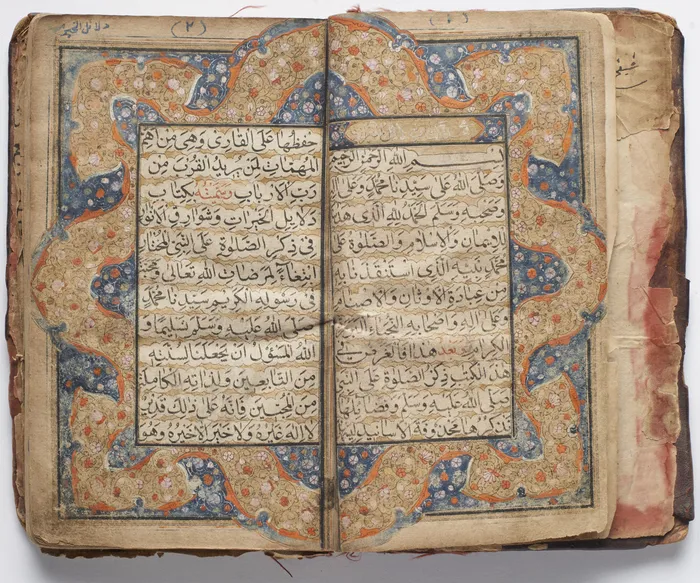 (١)
بسم الله الرحمن الرحيم
وصلى الله على سيدنا محمد وعلى
وصحبه وسلم الحمد لله الذى هد
للايمان والاسلام والصلوة على
محمد نبيه الذى استنقذنا به
من عبادة الاوثان والاصنام
وعلى اله واصحابه النجباء
الكرام وبعد هذا فالغرض فى
هذا الكتب ذكر الصلوة على النبى
صلى الله عليه وسلم وفضائلها
نذكرها محذوفة الاسانيد
(٢)
دلائل الخير
حفظها على القارى وهى من اهم
المهمات لمن يريد القرب من
رب الارباب وسميته بكتاب
دلايل الخيرات وشوارق الانوار
فى ذكر الصلوة على النبى المختار
ابتغاء لمرضات الله تعالى ومحبة
فى رسوله الكريم سيدنا محمد
صلى الله عليه وسلم تسليما و
الله المسؤل ان يجعلنا لسنته
من التابعين ولذاته الكاملة
من المحبين فانه على ذلك قدير
لا اله غيره ولا خير الا خيره وهو